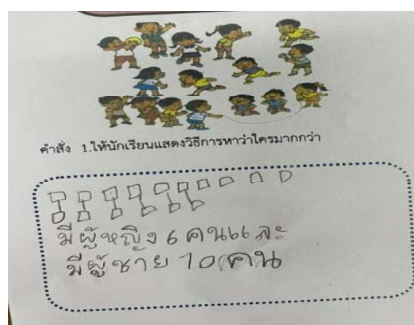 คำสั่ง 1.ให้นักเรียนแสดงวิธีการหาว่าใครมากกว่า
มีผู้หญิง 6 คนและ
มีผู้ชาย 10 คน